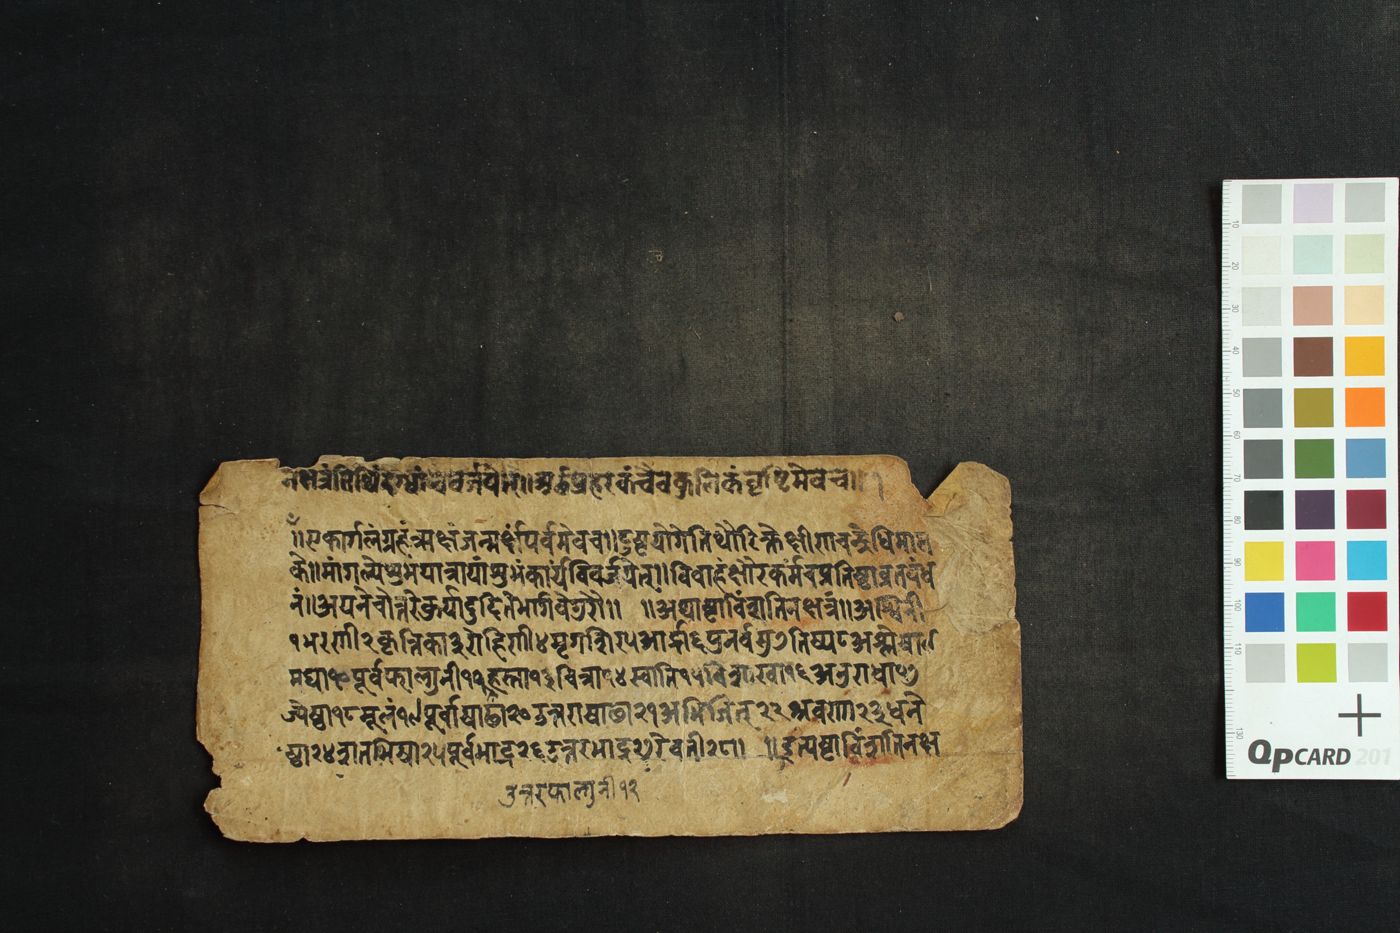 नक्षत्रं तिथिं दग्धां च वर्जयेत्॥ अर्द्धप्रहरकं चैव कुलिकं वृष्टिमेव च॥
॥सकार्गलंग्रहंजन्मर्क्षंपर्वमेवच॥दुष्टयोगेतिथौरिक्तेक्षीणचन्द्रेधिमास
के॥मांगल्येषुभंयात्रायांशुभंकार्यंविवर्जयेत्॥विवाहंक्षौरकर्मचप्रतिष्ठाव्रतबंध
नं॥अयनेचोत्तरेकुर्यादुदितेभार्गवेगुरौ॥ ॥अथाष्टाविंशतिनक्षत्रं॥अश्विनी
१भरणी२कृत्तिका३रोहिणी४मृगशिर५आर्द्रा६पुनर्वसु७तिष्य८अश्लेषा९
मघा१०पूर्वफाल्गुनी११हस्ता१३चित्रा१४स्वाति१५विशाखा१६अनुराधा१७
ज्येष्ठा१८मूलं१९पूर्वाषाढा२०उत्तराषाढा२१अभिजित्२२श्रवण२३धने
ष्ठा२४शतभिषा२५पूर्वभाद्र२६उत्तरभाद्र२७रेवती२८॥ ॥इत्यष्टाविंशतिनक्ष
उत्तरफाल्गुनी१२